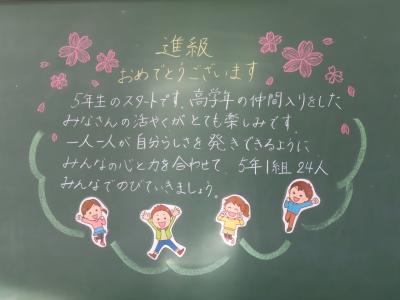 進級
おめでとうございます
5年生のスタートです。高学年の仲間入りをした
みなさんの活やくがとても楽しみです。
一人一人が自分らしさを発きできるように
みんなの心と力を合わせて、5年1組 24人
みんなでのびていきましょう。